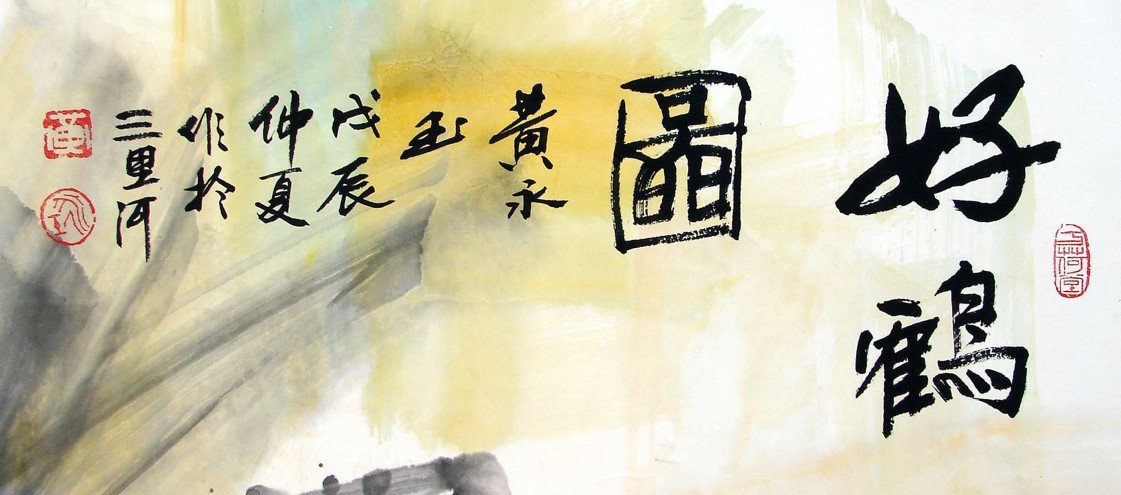 好鶴
圖
黃永
玉
戊辰
仲夏
作於
三里河
黃